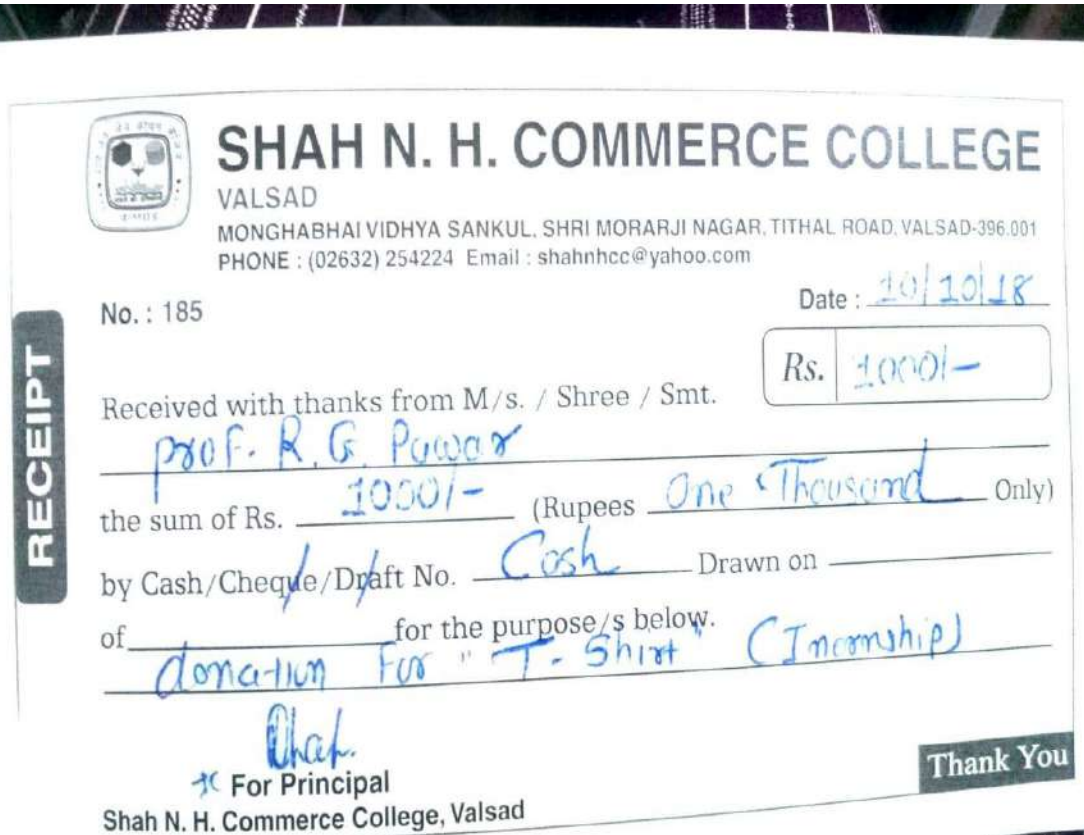 SHAH N. H. COMMERCE COLLEGE
VALSAD
MONGHABHAI VIDHYA SANKUL, SHRI MORARJI NAGAR, TITHAL ROAD, VALSAD-396.001
PHONE : (02632) 254224 Email : shahnhcc@yahoo.com
No. : 185
Date : 10/10/18
RECEIPT
Rs. 1000/-
Received with thanks from M/s. / Shree / Smt.
prof. R. G. Pawar
the sum of Rs. 1000/- (Rupees One Thousand Only)
by Cash/Cheque/Draft No. Cash Drawn on
of for the purpose/s below.
donation For "T-Shirt" (Inornship)
For Principal
Shah N. H. Commerce College, Valsad
Thank You